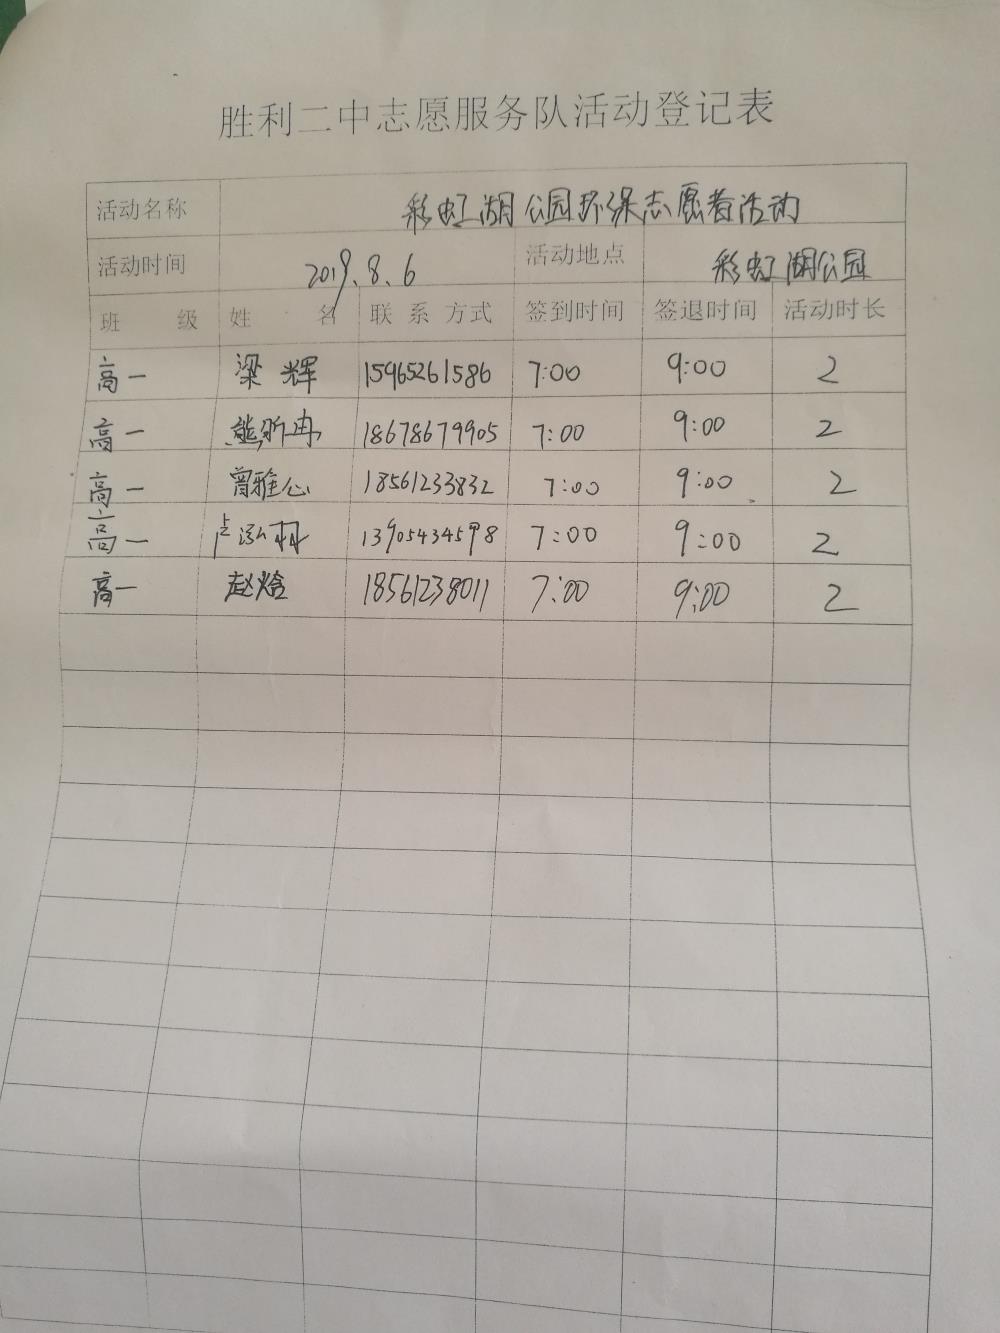 胜利二中志愿服务队活动登记表
活动名称 彩虹湖公园环保志愿者活动
活动时间 2019.8.6 活动地点 彩虹湖公园
班 级 姓 名 联系方式 签到时间 签退时间 活动时长
高一 梁辉 15965261586 7:00 9:00 2
高一 熊昕冉 18678679905 7:00 9:00 2
高一 曾雅心 18561233832 7:00 9:00 2
高一 卢泓羽 13905434598 7:00 9:00 2
高一 赵焓 18561238011 7:00 9:00 2